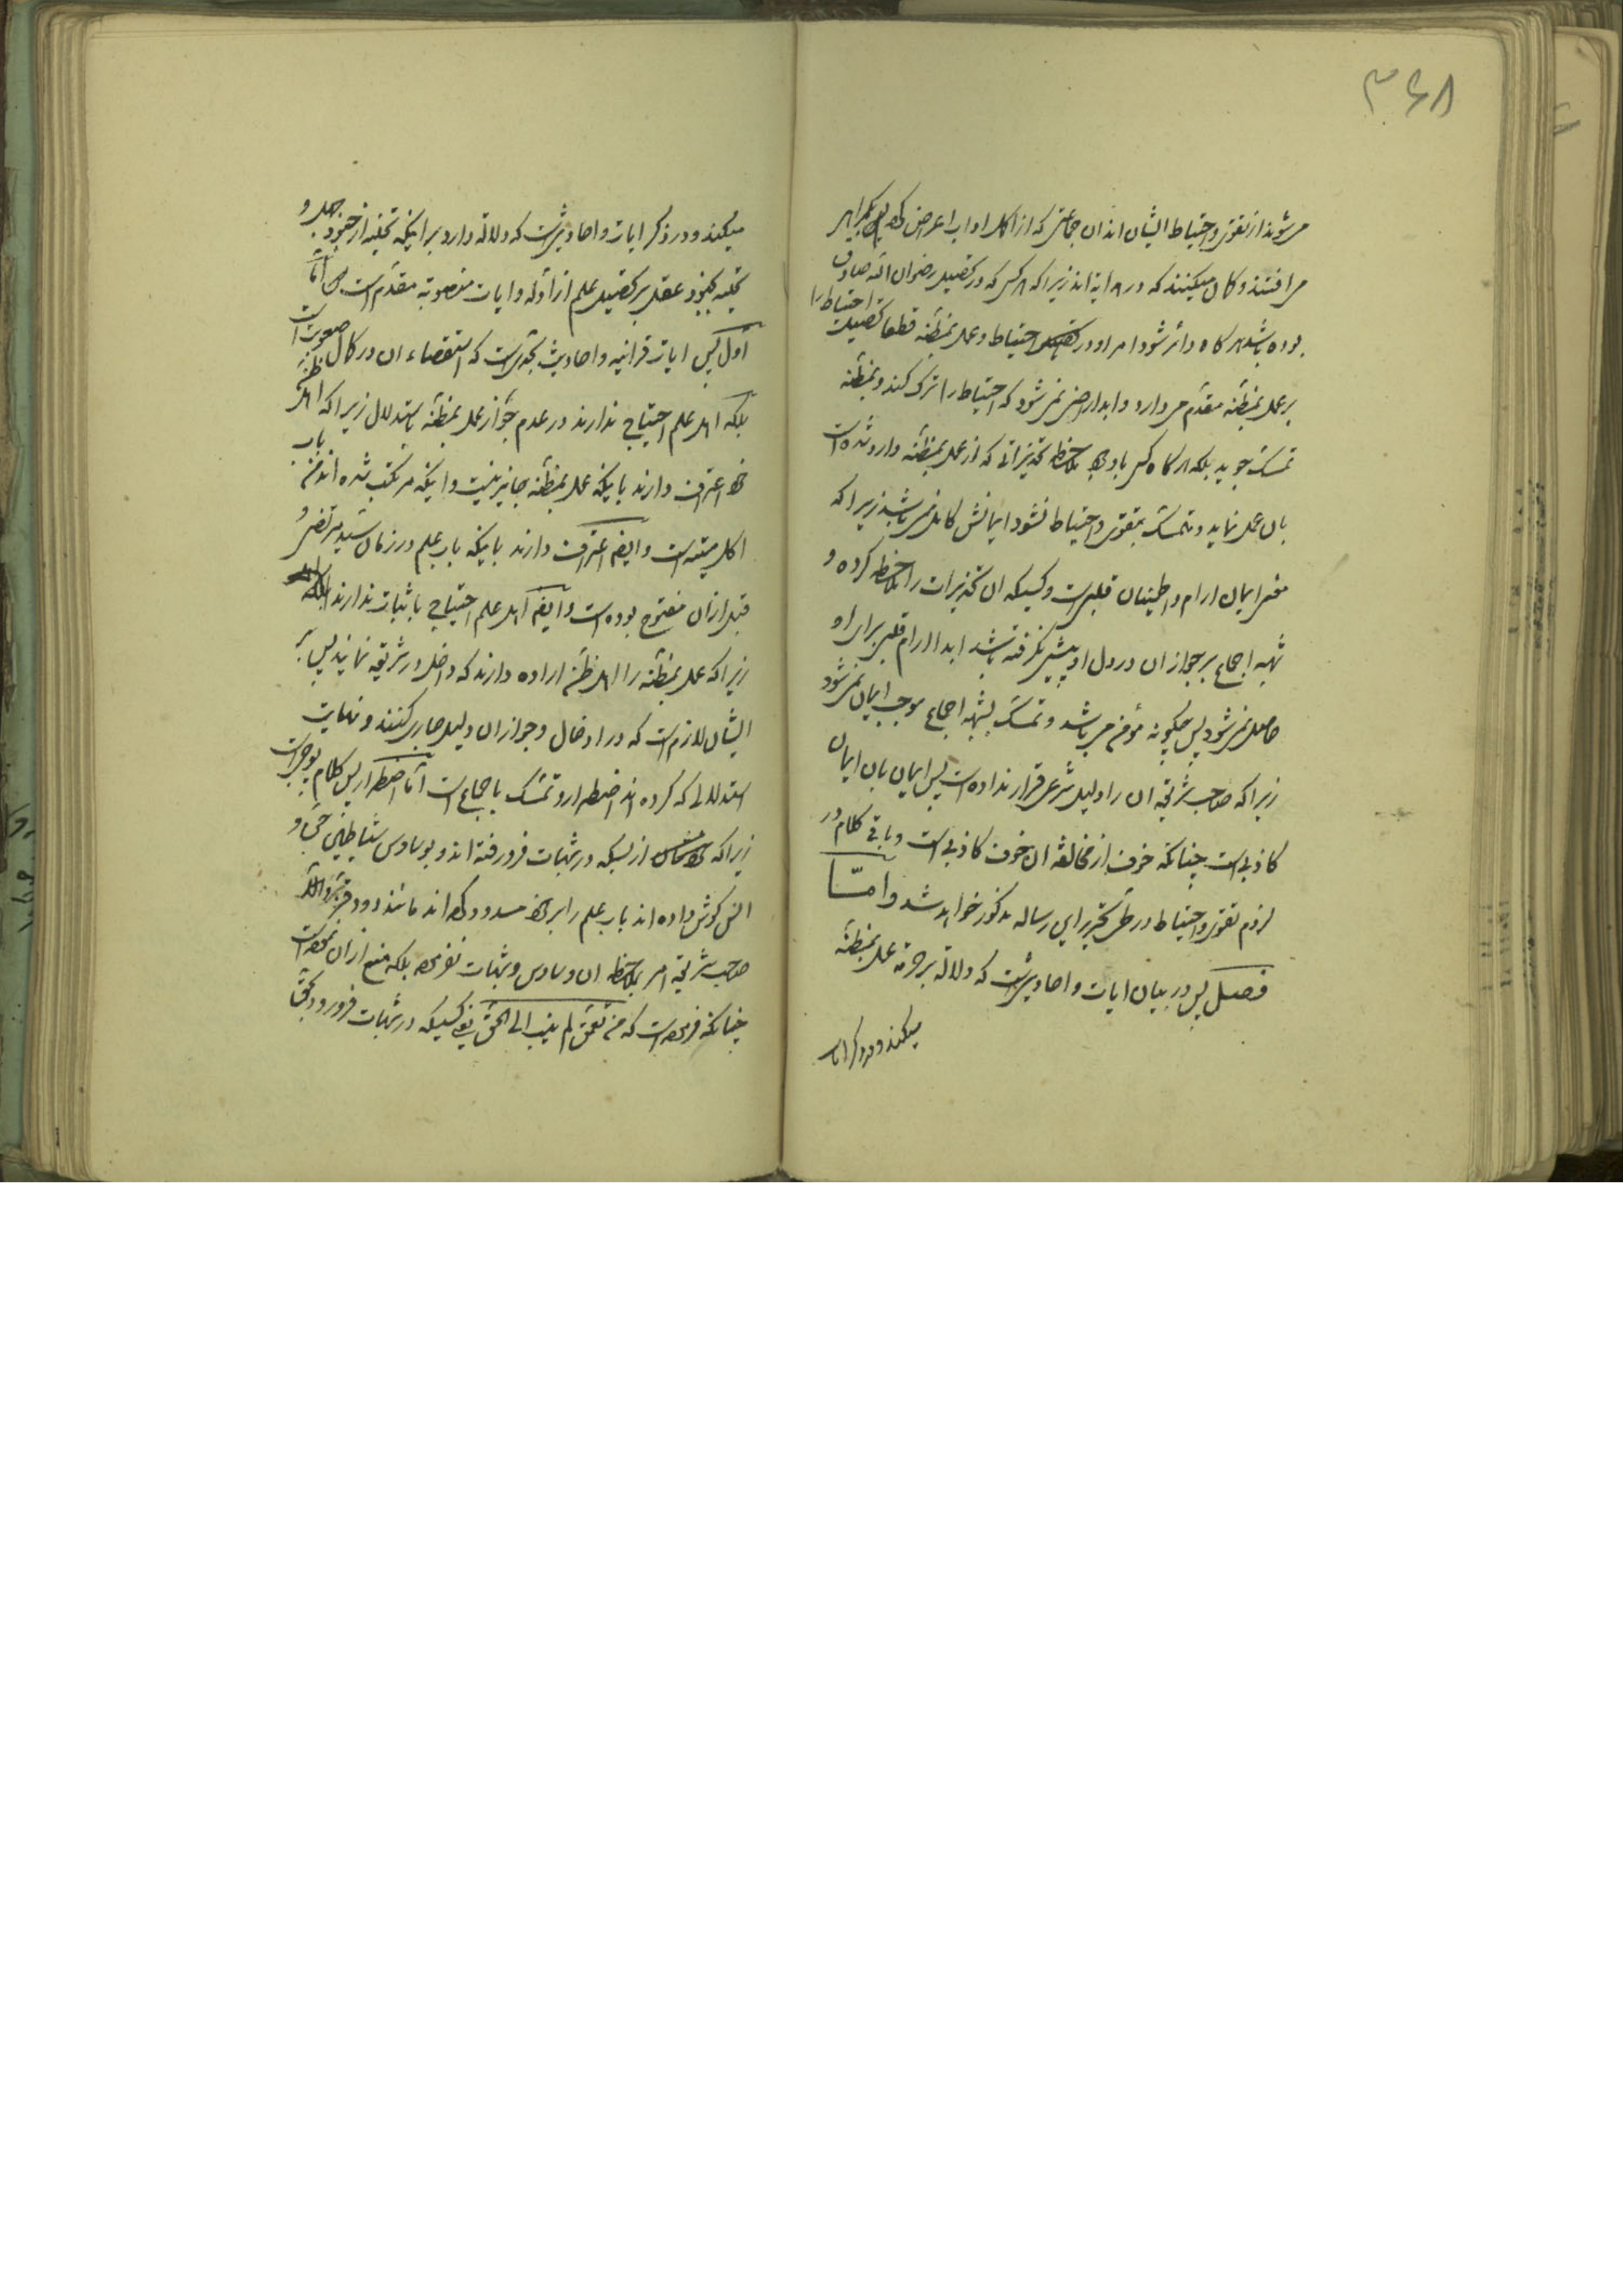 ۳۶۸
می‌شوند از تقوی و احتیاط ایشان اند ان جماعتی که از اکل او اب اعراض کرده
می افتند و کان میکنند که در هدایه اند زیرا که هر کس که در تحصیل رضوان الله صادق
بوده باشد هر کاه دائر شود امر او در احتیاط و عمل بمظنّه قطعا تحصیل احتیاط را
بر عمل بمظنّه مقدّم می دارد و ابدا راضی نمی شود که احتیاط را ترک کند و بمظنّه
تمسّک جوید بلکه هر کاه کسی باوجود ملاحظه تحذیراتی که از عمل بمظنّه وارد شده است
بان عمل نماید و متمسّک بتقوی و احتیاط نشود ایمانش کامل نمی باشد زیرا که
معنی ایمان ارام و اطمینان قلبی است و کسیکه ان تحذیرات را ملاحظه کرده و
شبهه اجماع بر جواز ان در دل او پیشی نکرفته باشد ابدا ارام قلبی برای او
حاصل نمی شود پس چکونه مؤمن می باشد و تمسّک بشبهه اجماع موجب ایمان نمی شود
زیرا که صاحب شریعة ان را دلیل شرعی قرار نداده است پس ایمان بان ایمان
کاذبی است چنانکه خوف از مخالفة ان خوف کاذبی است و باقی کلام در
لزوم تقوی و احتیاط در طی تحریر این رساله مذکور خواهد شد و امّا
فصل پس در بیان ایات و احادیثی است که دلالة بر حرمة عمل بمظنّه
میکند و در ذکر ایات
میکند و در ذکر ایات و احادیثی است که دلالة دارد بر اینکه تخلیه از جنود جهل و
تحلیه بجنود عقل بر تحصیل علم از ادلّه و ایات منصوبة مقدّم است امّا
اوّل پس ایات قرانیه و احادیث بحدّی است که استقصاء ان در کمال صعوبت است
بلکه اهل علم احتیاجی ندارند در عدم جواز عمل بمظنّه باستدلال زیرا که اهل ظنّ
خود اعتراف دارند باینکه عمل بمظنّه جایز نیست و اینکه مرتکب شده اند من باب
اکل میته است و ایضا اعتراف دارند باینکه باب علم در زمان سیّد مرتضی و
قبل از ان مفتوح بوده است و ایضا اهل علم احتیاجی باثبات ندارند
زیرا که عمل بمظنّه را اهل ظنّ اراده دارند که داخل در شریعة نمایند پس بر
ایشان لازم است که در ادخال و جواز ان دلیل جاری کنند و نهایت
استدلالی که کرده اند اضطرار و تمسّک باجماع است امّا اضطرار پس کلام پوچی است
زیرا که از بسکه در شبهات فرو رفته اند و بوساوس شیاطین جنّ و
انس کوش داده اند باب علم را بر خود مسدود کرده اند مانند دود قزّ و الّا
صاحب شریعة امر بملاحظه ان وساوس و شبهات نفرموده بلکه منع از ان نموده است
چنانکه فرموده است که من تعمّق لم ینب الی الحقّ یعنی کسیکه در شبهات فرو رود بحقّ